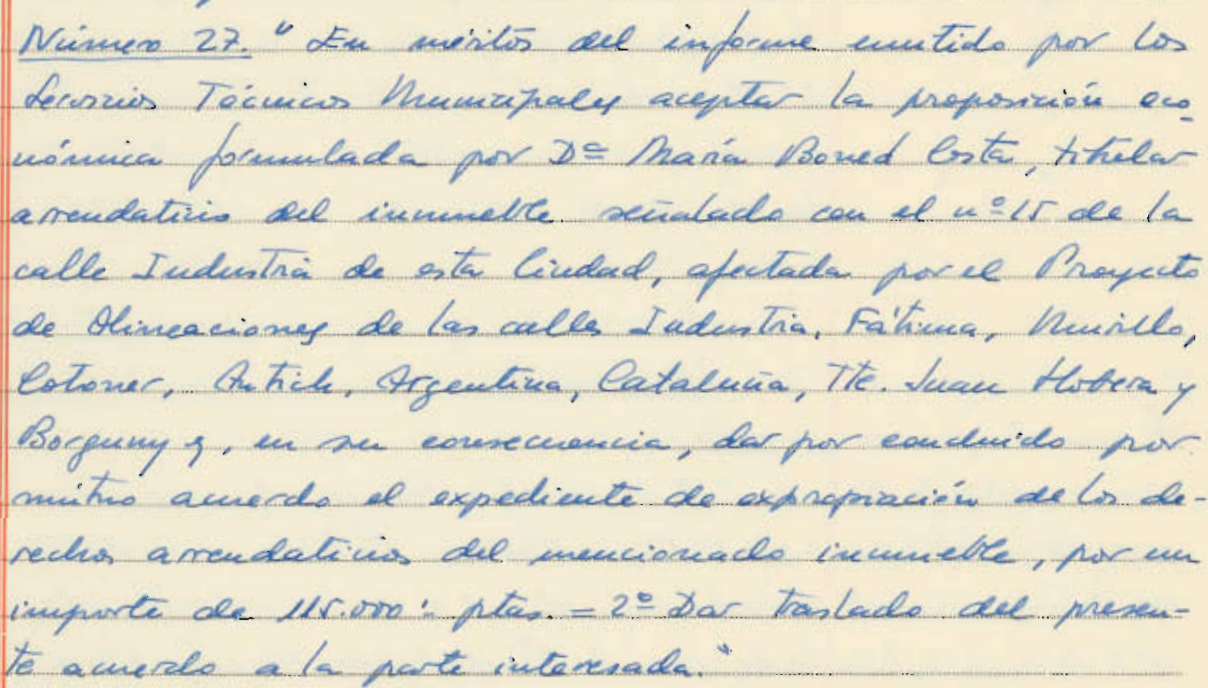 Número 27. " En méritos del informe emitido por los
Servicios Técnicos Municipales aceptar la proposición eco-
nómica formulada por Dª María Boned Costa, titular
arrendaticio del inmueble señalado con el nº 15 de la
calle Industria de esta Ciudad, afectada por el Proyecto
de Alineaciones de las calles Industria, Fátima, Murillo,
Cotoner, Antich, Argentina, Cataluña, Tte. Juan Llobera y
Borguny y, en su consecuencia, dar por concluido por
mútuo acuerdo el expediente de expropiación de los de-
rechos arrendaticios del mencionado inmueble, por un
importe de 115.000'- ptas. = 2º Dar traslado del presen-
te acuerdo a la parte interesada."